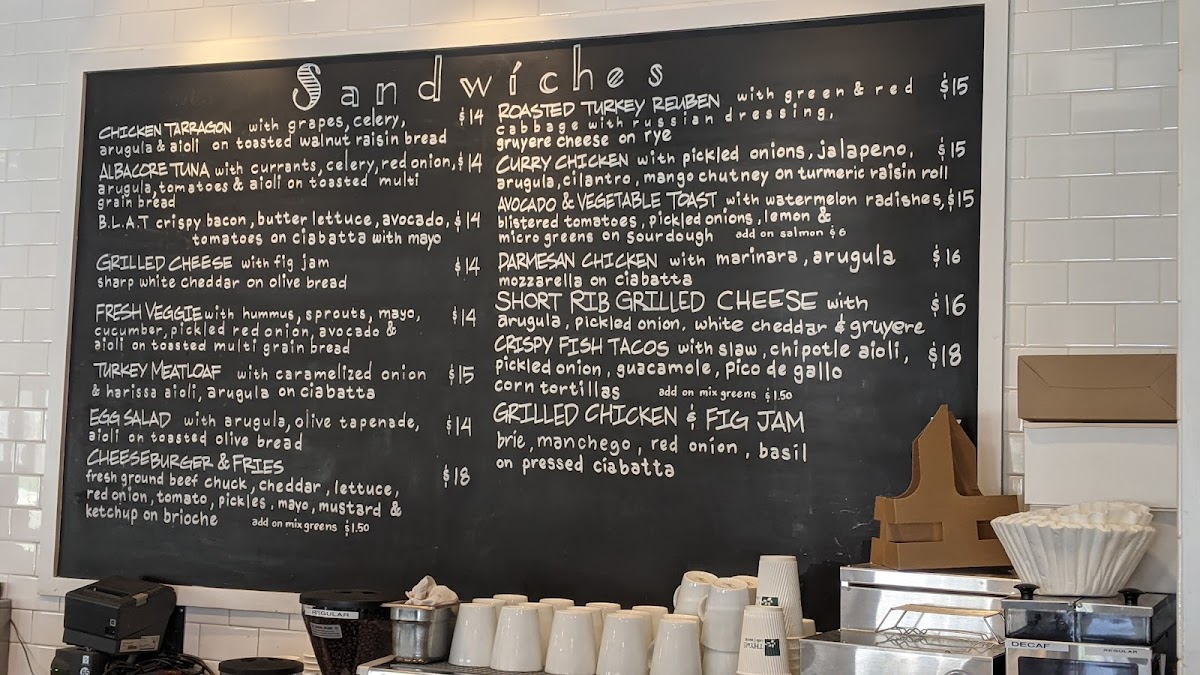 Sandwiches
CHICKEN TARRAGON with grapes, celery, $14
arugula & aioli on toasted walnut raisin bread
ALBACORE TUNA with currants, celery, red onion, $14
arugula, tomatoes & aioli on toasted multi
grain bread
B.L.A.T crispy bacon, butter lettuce, avocado, $14
tomatoes on ciabatta with mayo
GRILLED CHEESE with fig jam $14
sharp white cheddar on olive bread
FRESH VEGGIE with hummus, sprouts, mayo, $14
cucumber, pickled red onion, avocado &
aioli on toasted multi grain bread
TURKEY MEATLOAF with caramelized onion $15
& harissa aioli, arugula on ciabatta
EGG SALAD with arugula, olive tapenade, $14
aioli on toasted olive bread
CHEESEBURGER & FRIES $18
fresh ground beef chuck, cheddar, lettuce,
red onion, tomato, pickles, mayo, mustard &
ketchup on brioche add on mix greens $1.50
ROASTED TURKEY REUBEN, with green & red $15
cabbage with russian dressing,
gruyere cheese on rye
CURRY CHICKEN with pickled onions, jalapeno, $15
arugula, cilantro, mango chutney on turmeric raisin roll
AVOCADO & VEGETABLE TOAST with watermelon radishes, $15
blistered tomatoes, pickled onions, lemon &
micro greens on sourdough add on salmon $6
PARMESAN CHICKEN with marinara, arugula $16
mozzarella on ciabatta
SHORT RIB GRILLED CHEESE with $16
arugula, pickled onion, white cheddar & gruyere
CRISPY FISH TACOS with slaw, chipotle aioli, $18
pickled onion, guacamole, pico de gallo
corn tortillas add on mix greens $1.50
GRILLED CHICKEN & FIG JAM
brie, manchego, red onion, basil
on pressed ciabatta
REGULAR
DECAF
REGULAR